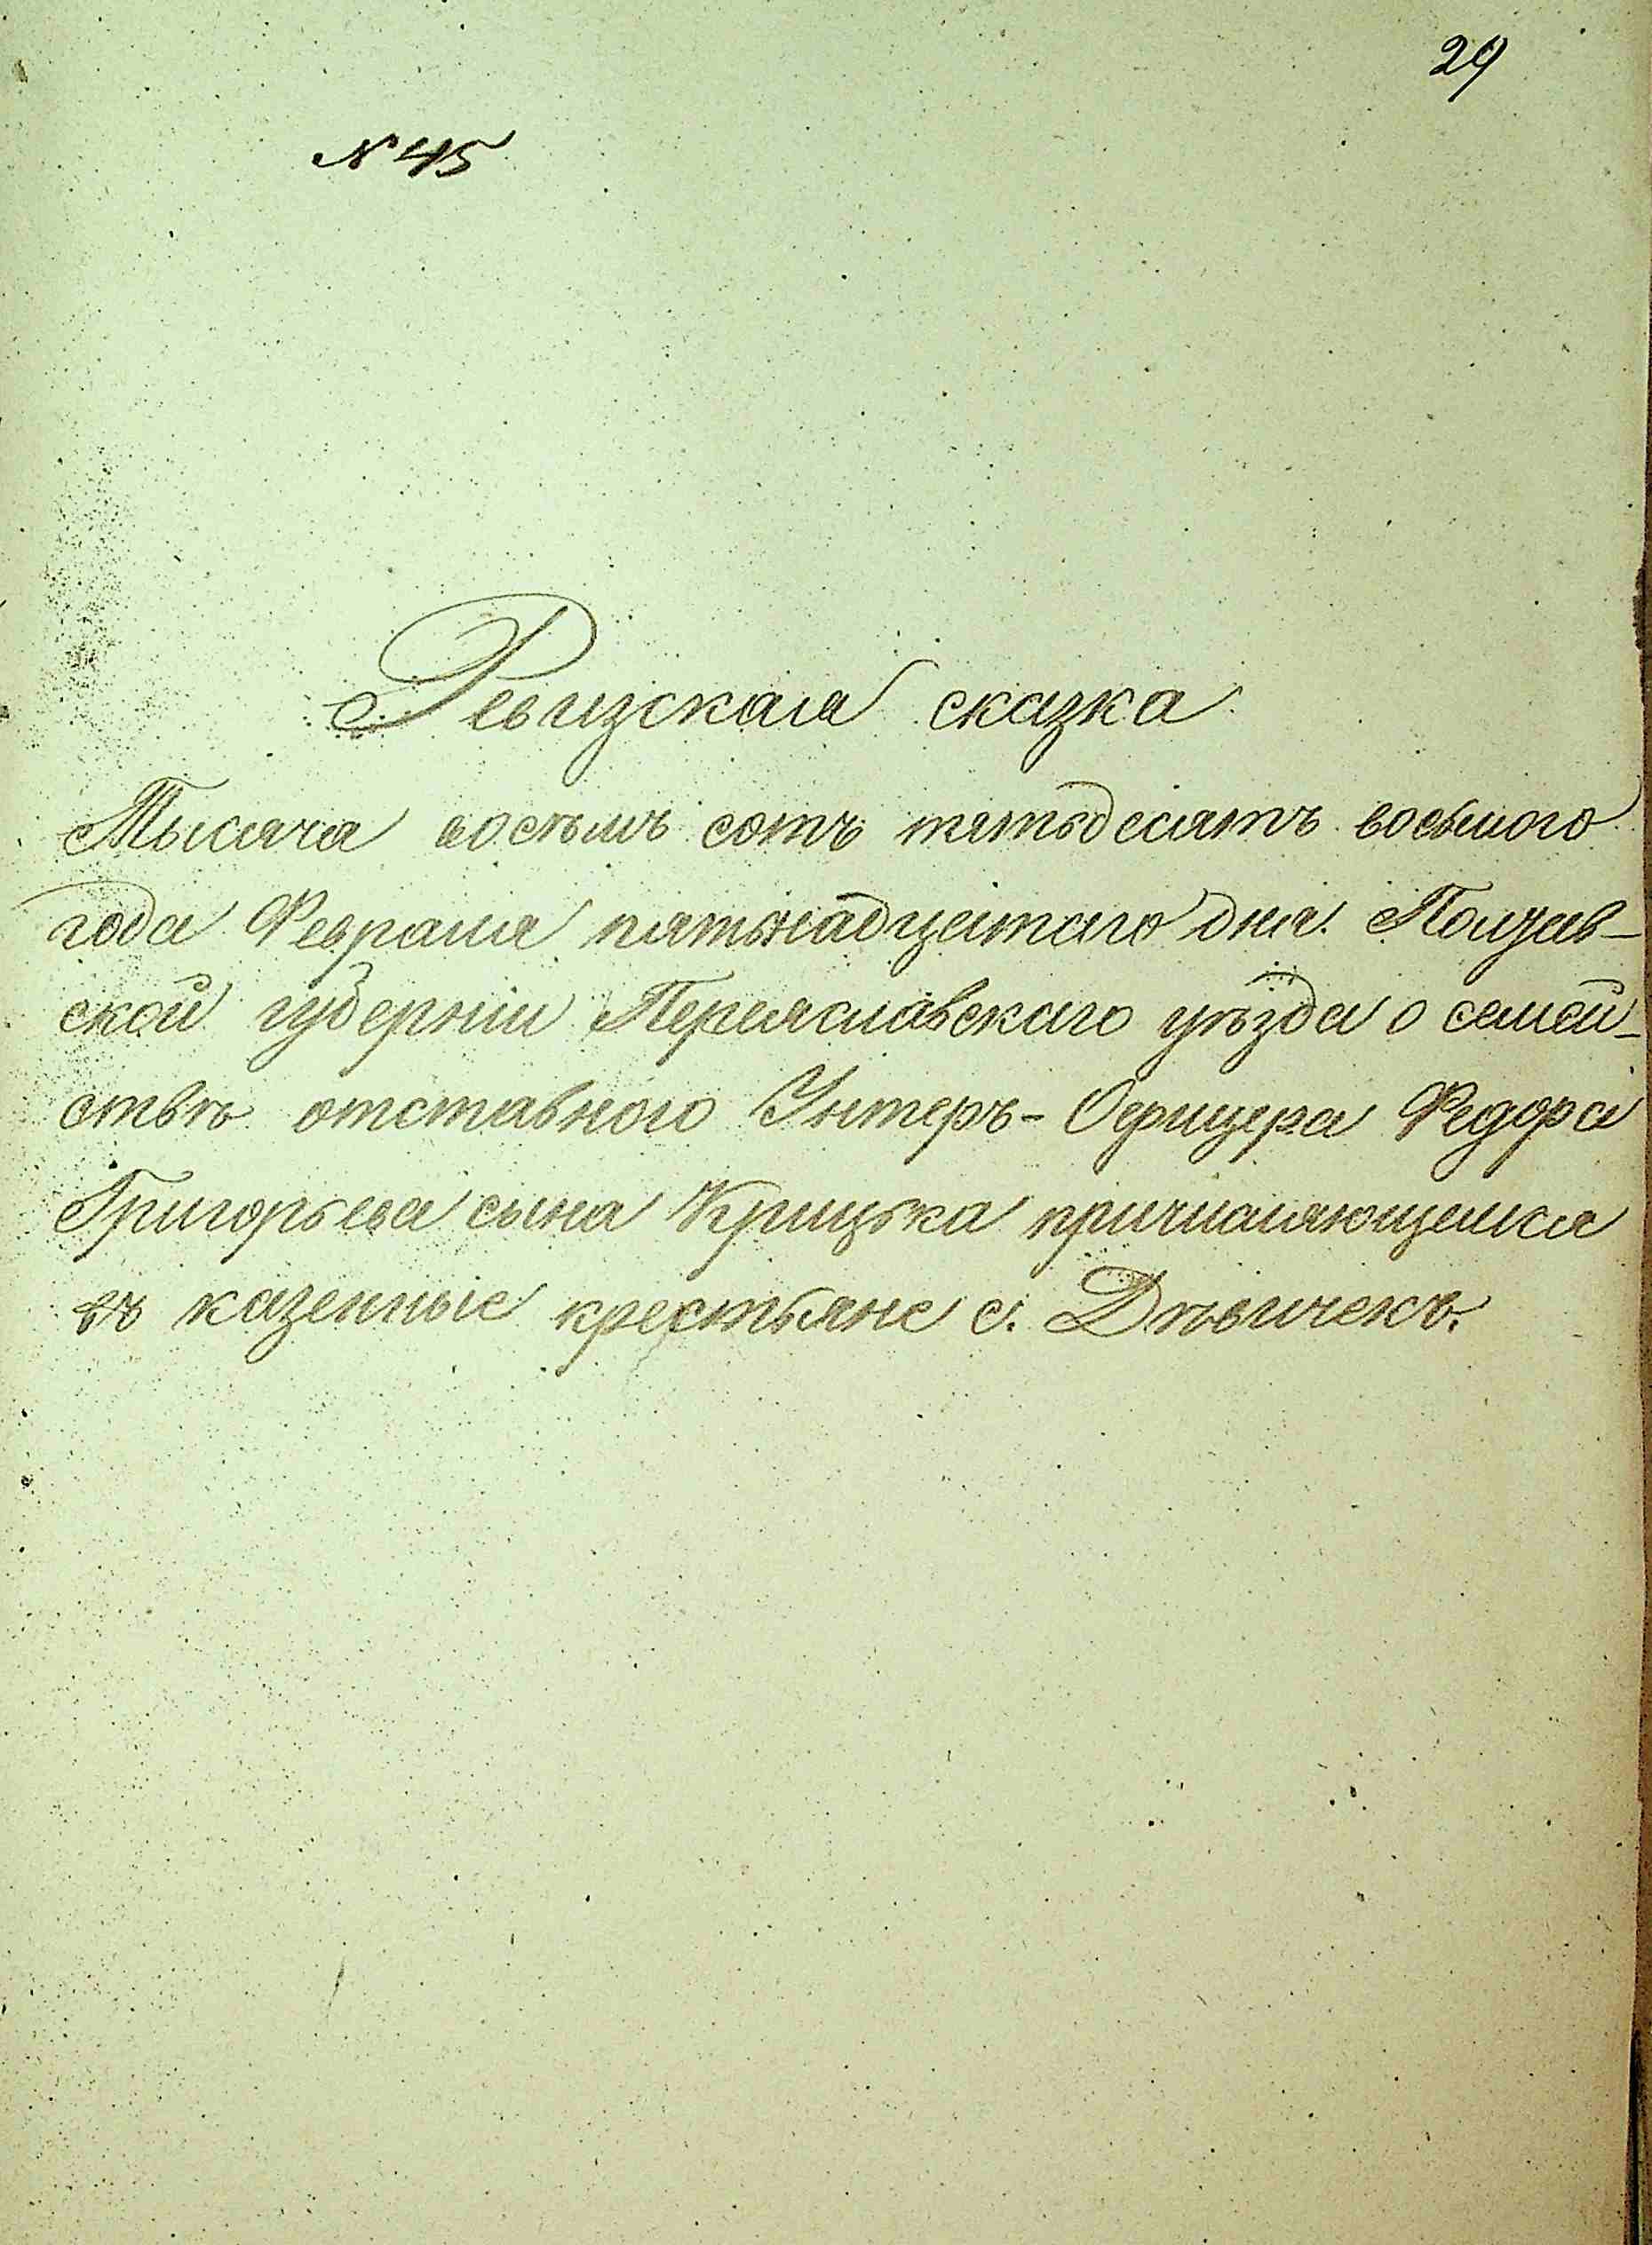 29
№ 45
Ревизская сказка
Тысяча восемь сотъ пятьдесятъ восьмого
года Февраля пятьнадцатаго дня. Полтав-
ской губерніи Переяславскаго уѣзда о семей-
ствѣ отставного Унтеръ-Офицера Федора
Григорьева сына Крицька причисляющемся
въ казенные крестьяне с. Дѣвичекъ.